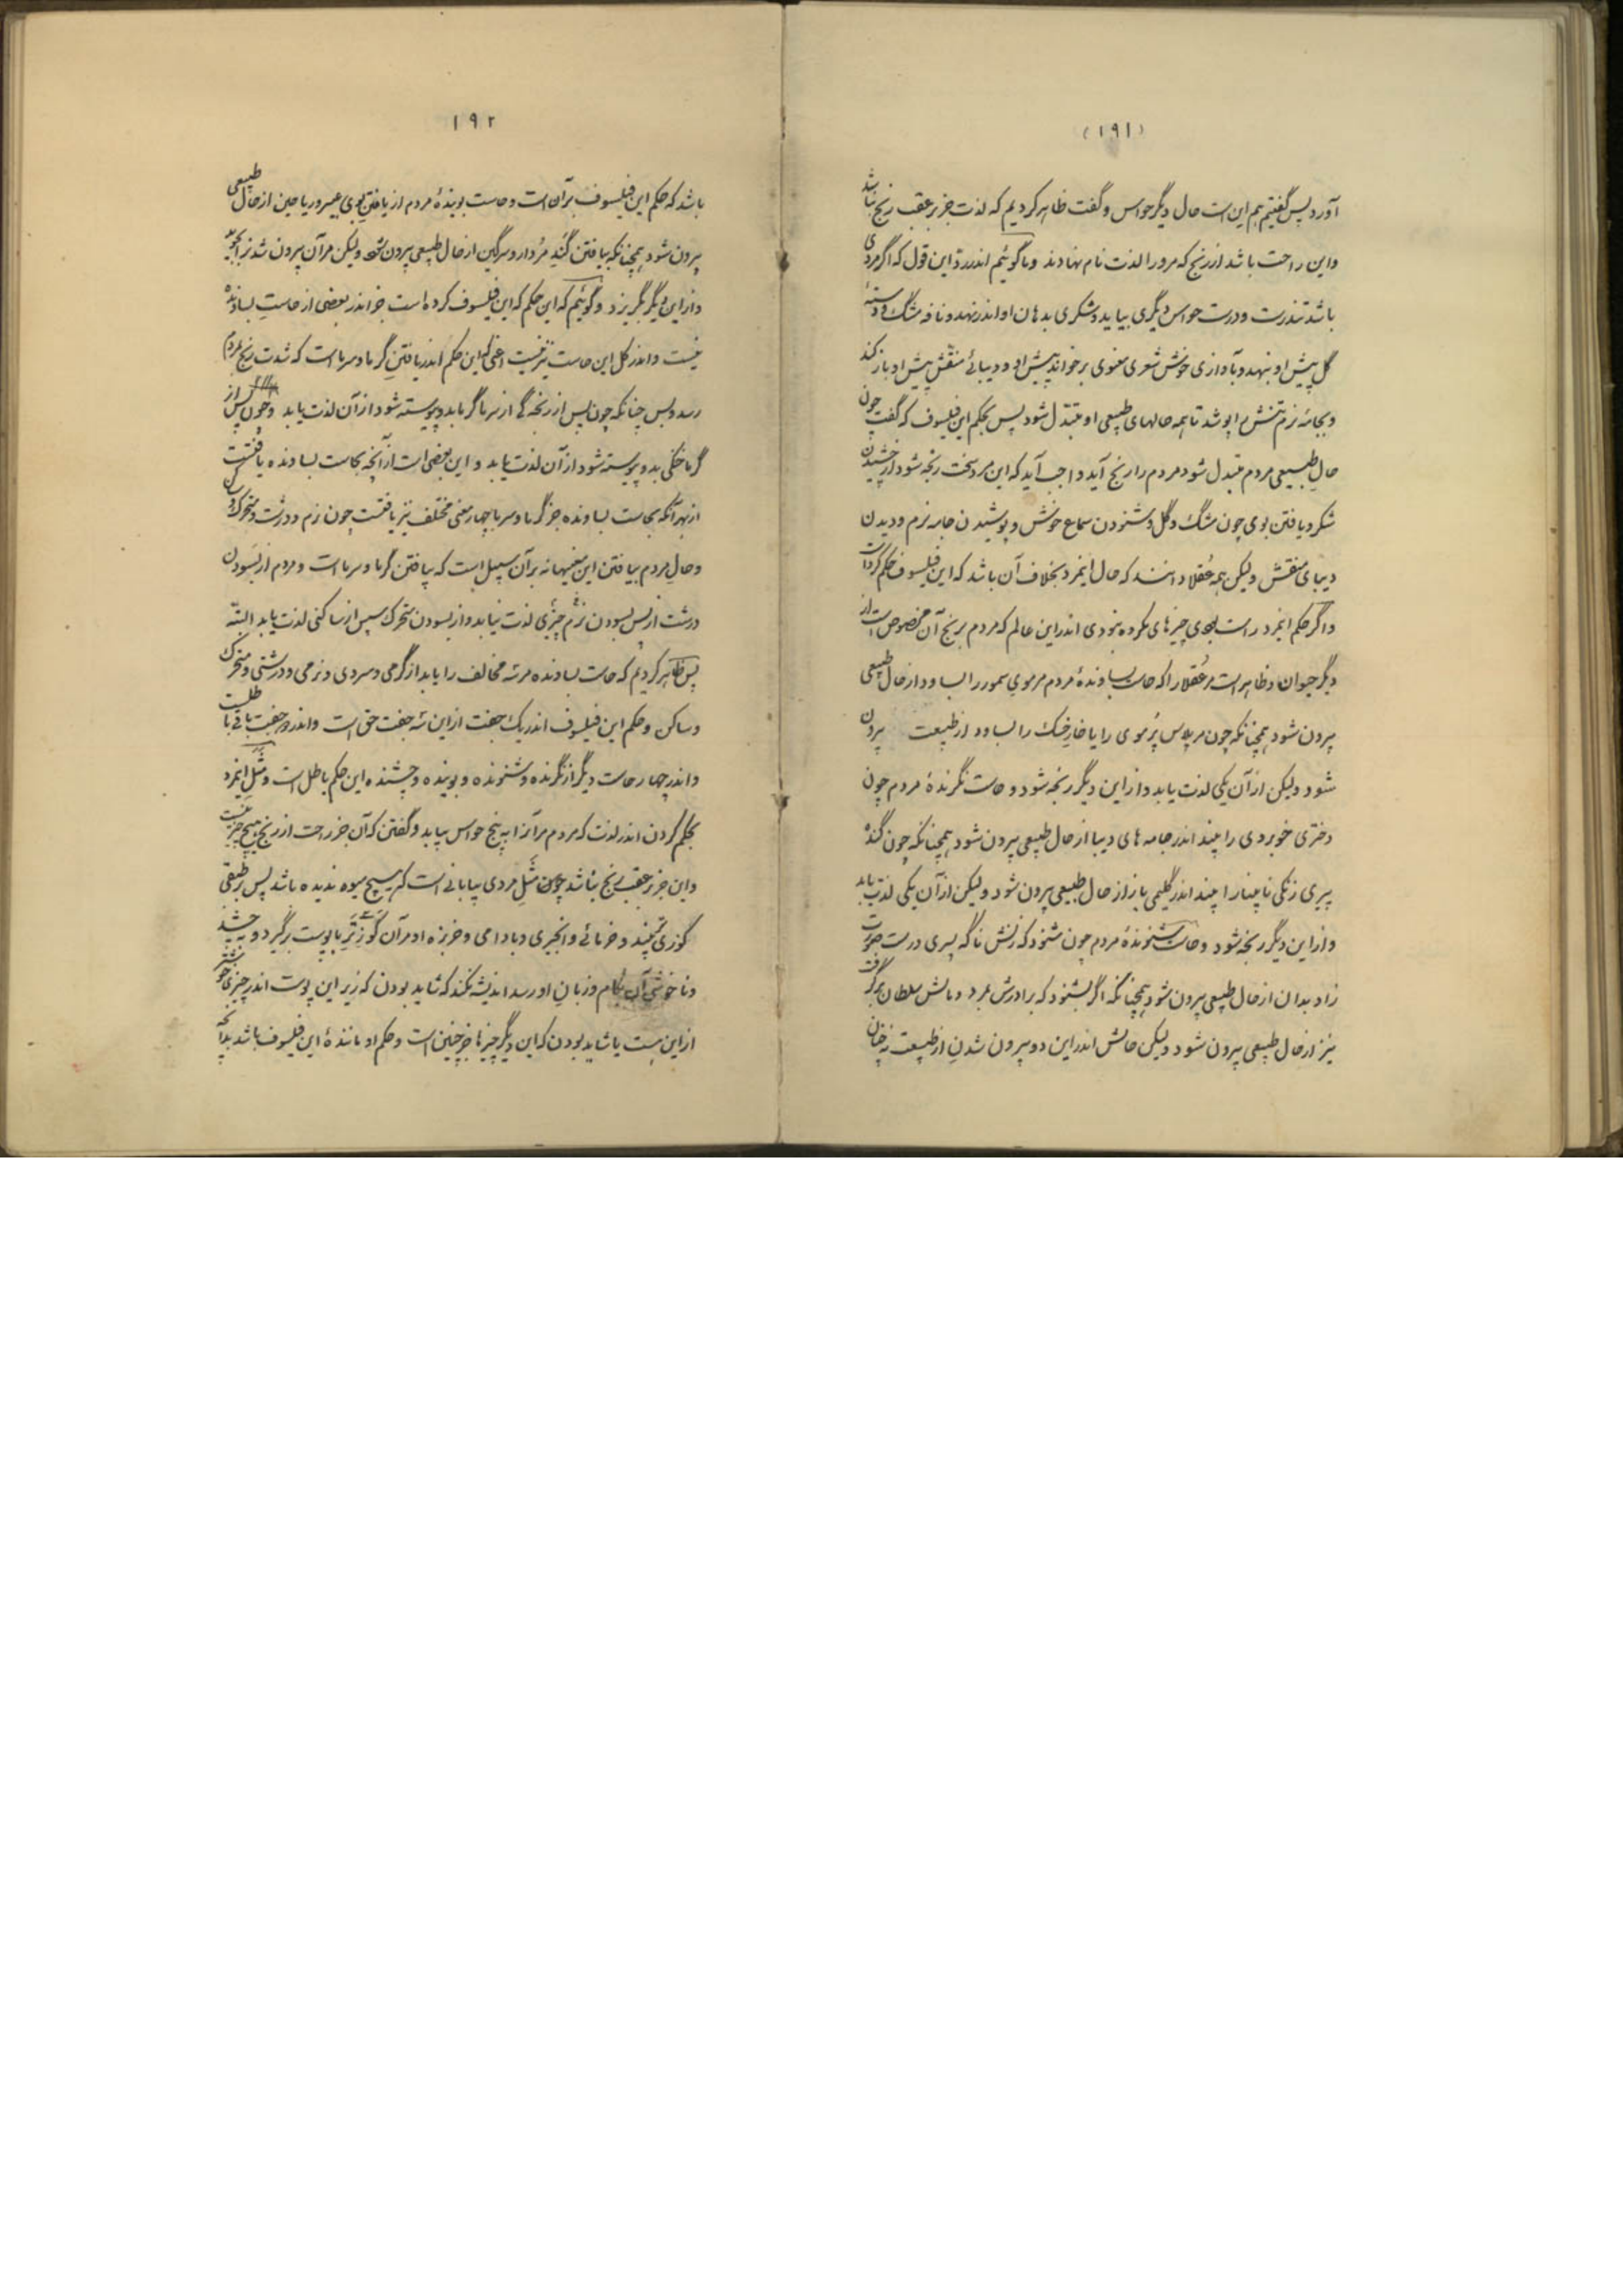 (۱۹۱)
آورد پس گفتیم هم این است حال دیگر حواس و گفت ظاهر کردیم که لذت جز بر عقب رنج نباشد
و این راحت باشد از رنج که مرورا لذت نام نهادند و ما گوئیم اندر رد این قول که اگر مردی
باشد تندرست و درست حواس دیگری بیاید و شکری بدهان او اندر نهد و نافه مشگ و دستهٔ
گل پیش او بنهد و بآوازی خوش شعری معنوی برخواند پیش او و دیبائے منقش پیش او باز کند
و بجامه نرم تنش را بپوشد تا همه حالهای طبیعی او متبدل شود پس بحکم این فیلسوف که گفت چون
حال طبیعی مردم متبدل شود مردم را رنج آید واجب آید که این مرد سخت رنجه شود از چشیدن
شکر و یافتن بوی چون مشگ و گل و شنودن سماع خوش و پوشیدن جامه نرم و دیدن
دیبای منقش ولیکن همه عقلا دانند که حال اینمرد بخلاف آن باشد که این فیلسوف حکم کرد است
و اگر حکم اینمرد راست بودی چیزهای مکروه نبودی اندر این عالم که مردم برنج آن مخصوص است از
دیگر حیوان و ظاهر است مر عقلا را که حاست بساوندهٔ مردم مر موی سمور را بساود از حال طبیعی
بیرون شود همچنانکه چون مر پلاس پر موی را یا خار خسک را بساود از طبیعت بیرون
شود ولیکن از آن یکی لذت یابد و از این دیگر رنجه شود و حاست نگرندهٔ مردم چون
دختری خوبروی را بیند اندر جامه های دیبا از حال طبیعی بیرون شود همچنانکه چون گنده
پیری زنگی نابینا را بیند اندر گلیمی باز از حال طبیعی بیرون شود ولیکن از آن یکی لذت یابد
و از این دیگر رنجه شود و حاست شنوندهٔ مردم چون بشنود که زنش ناگه پسری درست صورت
زاد بدان از حال طبیعی بیرون شود همچنانکه اگر بشنود که برادرش بمرد و مالش سلطان برگرفت
نیز از حال طبیعی بیرون شود ولیکن حالش اندر این دو بیرون شدن از طبیعت نه چنان
۱۹۲
باشد که حکم این فیلسوف بر آن است و حاست بویندهٔ مردم از یافتن بوی عبیر و ریاحین از حال طبیعی
بیرون شود همچنانکه بیافتن گند مردار و سرگین از حال طبیعی بیرون شود ولیکن مر آن بیرون شدنرا بجوید
و از این دیگر بگریزد و گوئیم که این حکم که این فیلسوف کرده است جز اندر بعضی از حاست بساونده
نیست و اندر کل این حاست نیز نیست اعنی که این حکم اندر یافتن گرما و سرماست که شدت رنج بمردم
رسد و بس چنانکه چون پس از رنجگی از سرما گرما بدو پیوسته شود از آن لذت یابد و چون پس از
گرما خنکی بدو پیوسته شود از آن لذت یابد و این بعضی است از آنچه بحاست بساونده یافتست
از بهر آنکه بحاست بساونده جز گرما و سرما چهار معنی مختلف نیز یافتست چون نرم و درشت و متحرک و ساکن
و حال مردم بیافتن این معنیها نه بر آن سبیل است که بیافتن گرما و سرماست و مردم از بسودن
درشت از پس بسودن نرم چیزی لذت نیابد و از بسودن متحرک سپس از ساکنی لذت یابد البته
پس ظاهر کردیم که حاست بساونده مر سه مخالف را یابد از گرمی و سردی و نرمی و درشتی و متحرک
و ساکن و حکم این فیلسوف اندر یک جفت از این سه جفت حق است و اندر دو جفت باقی باطلست
و اندر چهار حاست دیگر از نگرنده و شنونده و بوینده و چشنده این حکم باطل است و مثل اینمرد
بحکم کردن اندر لذت که مردم مر آنرا به پنج حواس بیابد و گفتن که آن جز راحت از رنج هیچ چیز نیست
و این جز بر عقب رنج نباشد چون مثل مردی بیابانی است که هیچ میوه ندیده باشد پس بر طبقی
گوزی تر بیند و خرمائے و انجیری و بادامی و خربزه او مر آن گوز تر با پوست برگیرد و بچشد
و ناخوشی آن بکام و زبان او رسد اندیشه نکند که شاید بودن که زیر این پوست اندر چیزی خوشتر
از این هست یا شاید بودن که این دیگر چیزها جز چنین است و حکم او مانندهٔ این فیلسوف باشد بدانچه